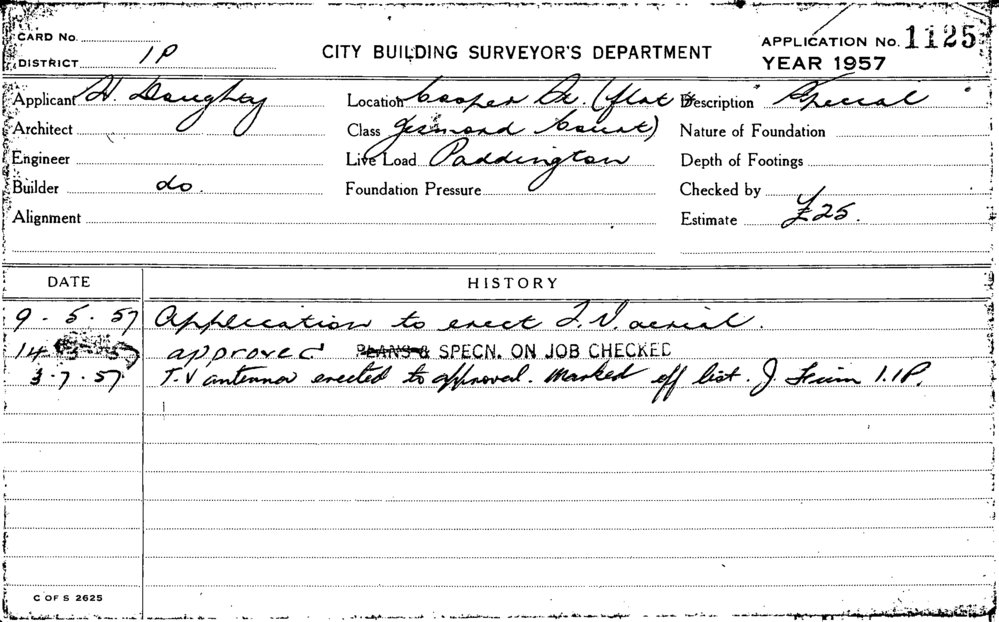 CARD No.
DISTRICT 1P
CITY BUILDING SURVEYOR'S DEPARTMENT
APPLICATION No. 1125
YEAR 1957
Applicant H. Doughty
Location Cooper St. (flat 8
Description Special
Architect
Class Jesmond Court)
Nature of Foundation
Engineer
Live Load Paddington
Depth of Footings
Builder do.
Foundation Pressure
Checked by
Alignment
Estimate £25.
DATE HISTORY
9 . 5 . 57 Application to erect T.V. aerial.
14 5 57 approved PLANS & SPECN. ON JOB CHECKED
3.7.57 T.V antenna erected to approval. Marked off list. J. 1.1P.
C OF S 2625